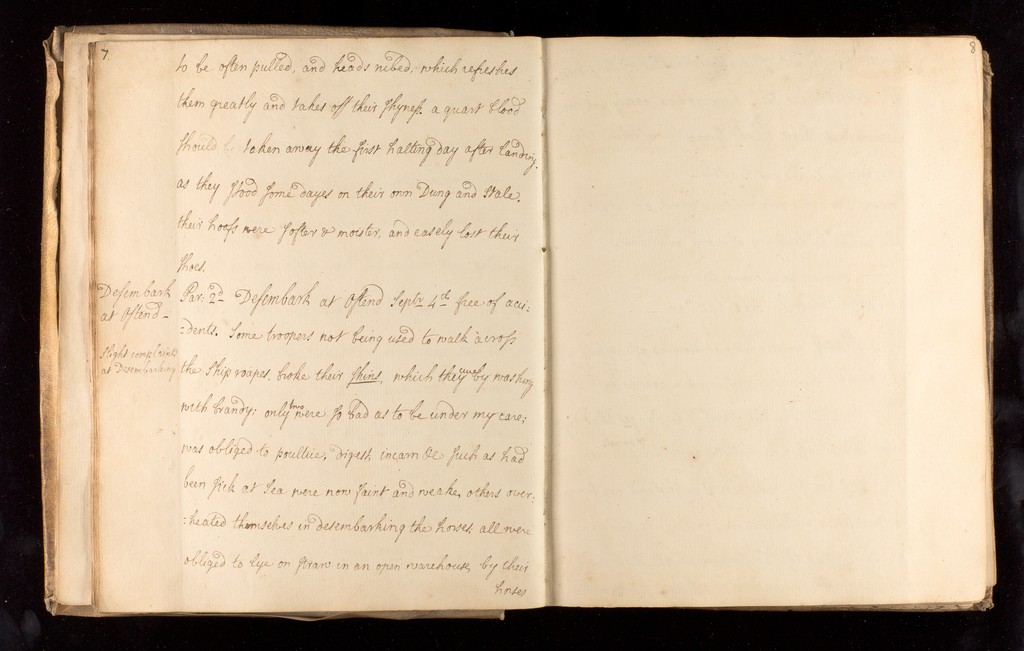 7
to be often pulled, and heads rubed, which refreshes
them greatly and takes off their shyness. a quart blood
should be taken away the first halting day after landing.
as they stood some dayes on their own Dung and Stale,
their hoofs were softer & moister, and easely lost their
shoes.
Desembark
at Ostend-
Slight complaints
at Desembarking
Par: 2d Desembark at Ostend Septr 4th free of acci:
:dents. Some troopers not being used to walk across
the Ship roapes, broke their shins, which they cured by washing
with brandy; only two were so bad as to be under my care;
was obliged to poultice, digest, incarn &c Such as had
been sick at Sea were now faint and weake, others over:
:heated themselves in desembarking the horses, all were
obliged to lye on straw in an open warehouse, by their
horses
8